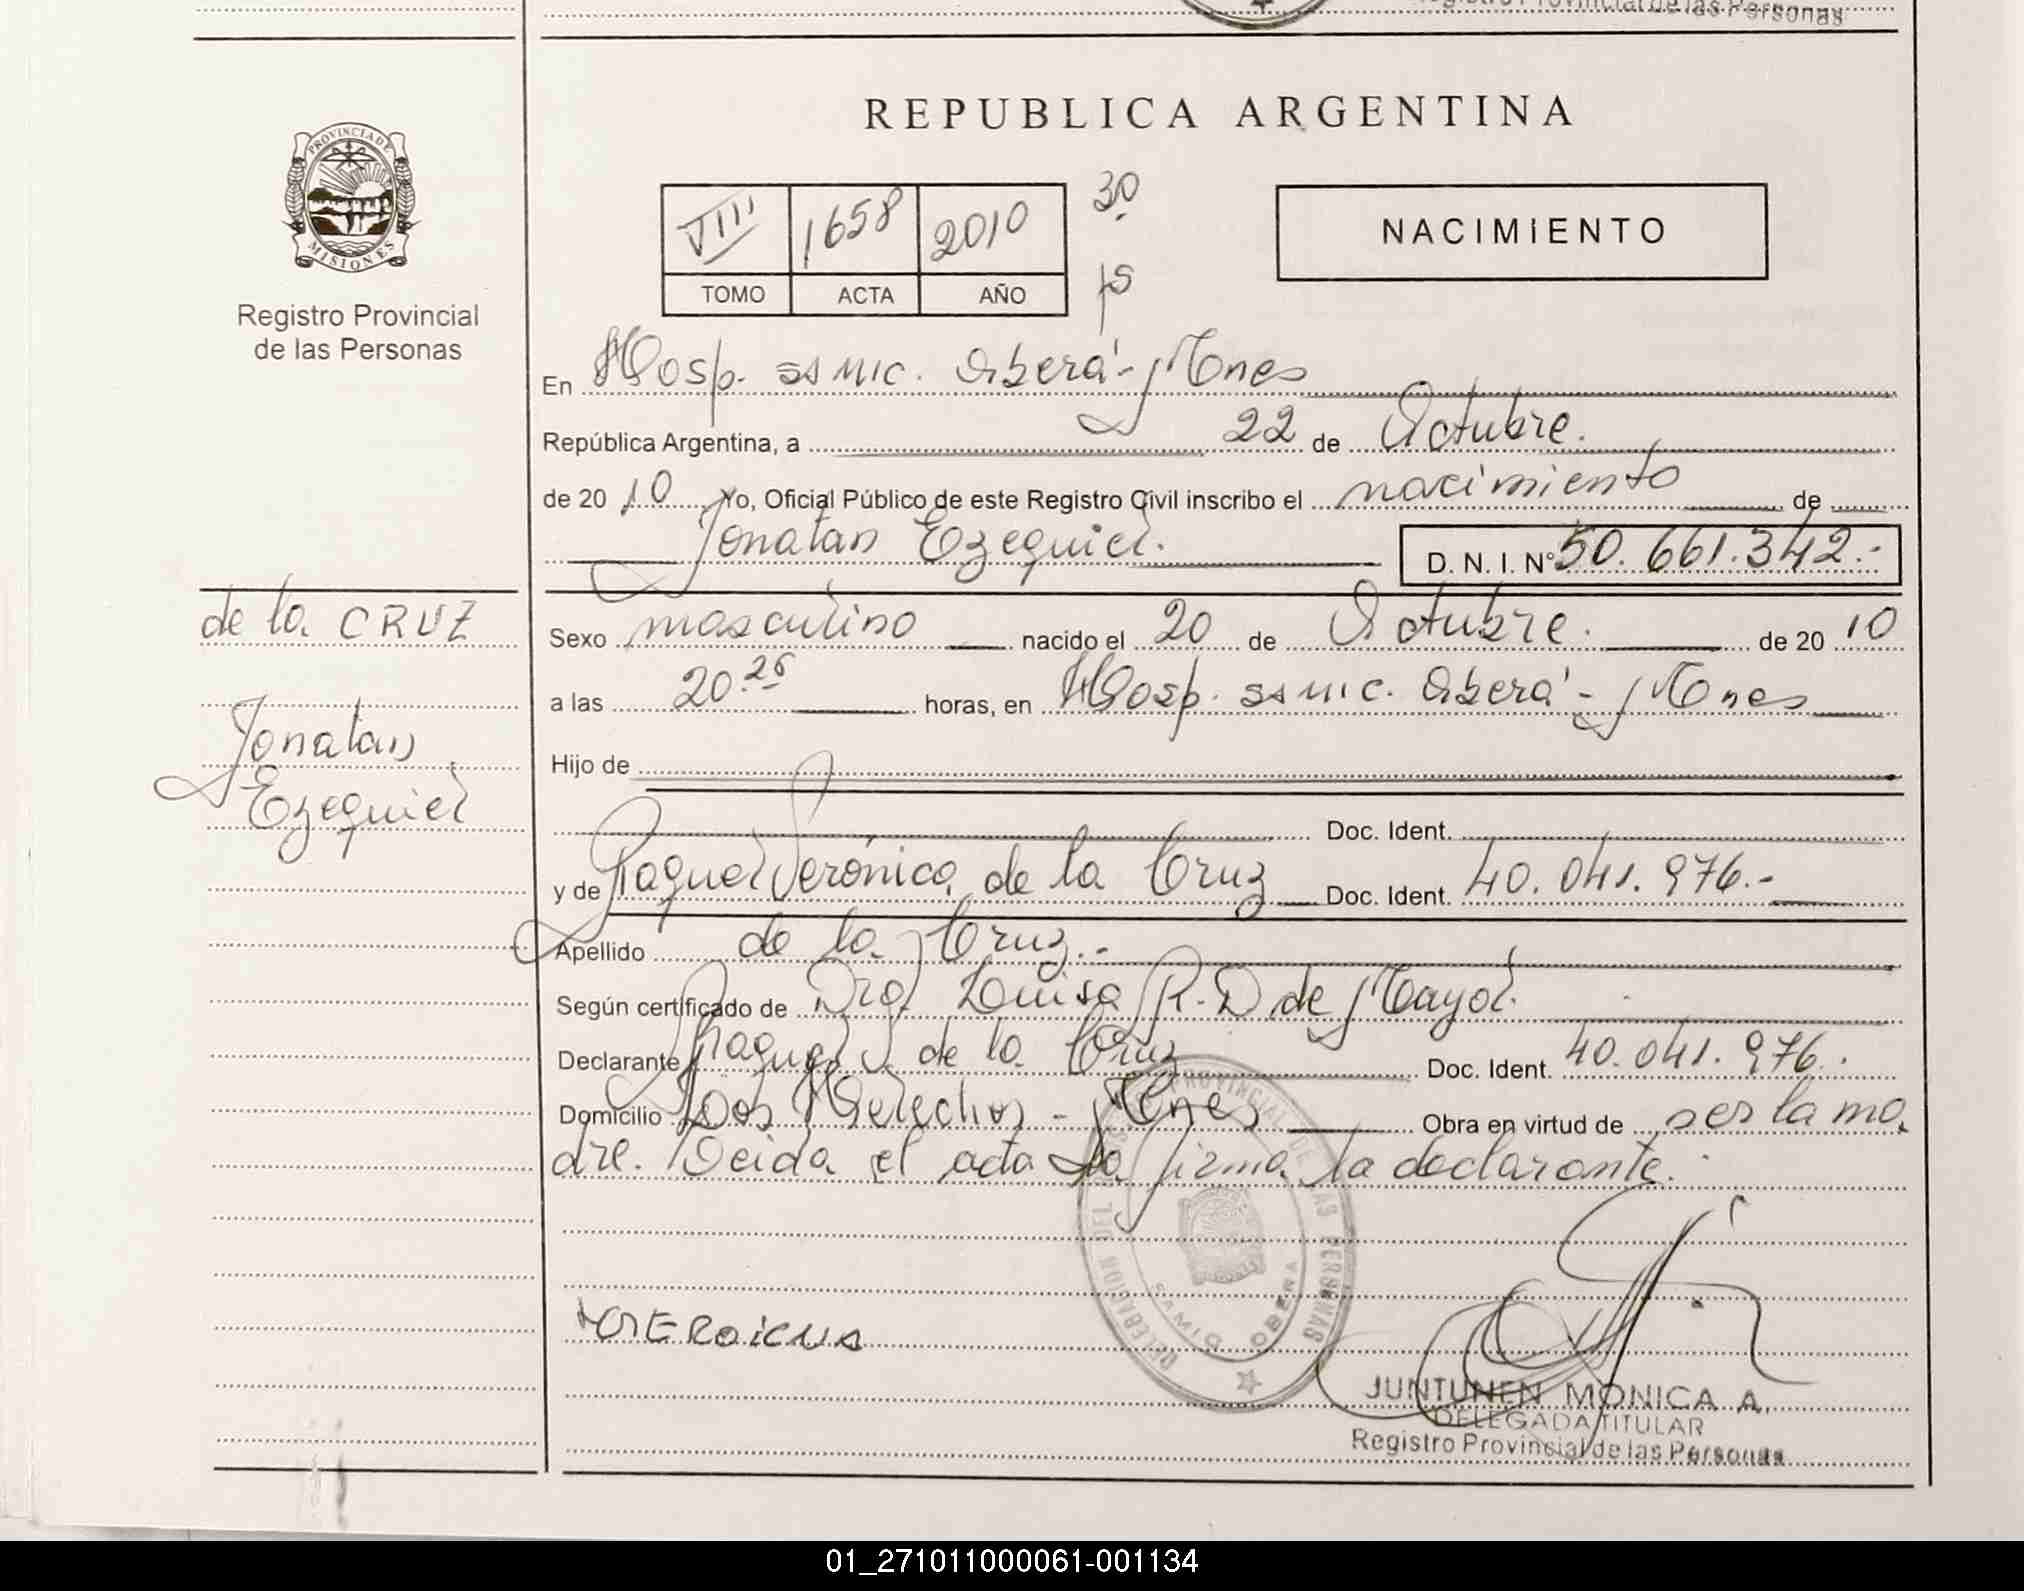 Registro Provincial de las Personas
REPUBLICA ARGENTINA
PROVINCIA DE
MISIONES
Registro Provincial
de las Personas
VIII 1658 2010 30
TOMO ACTA AÑO
NACIMIENTO
En Hosp. SAMIC. Oberá - Mnes
República Argentina, a 22 de Octubre.
de 20 10 Yo, Oficial Público de este Registro Civil inscribo el nacimiento de
Jonatan Ezequiel. D. N. I. N° 50.661.342.-
de la CRUZ
Jonatan
Ezequiel
Sexo masculino nacido el 20 de Octubre. de 20 10
a las 20.25 horas, en Hosp. SAMIC. Oberá - Mnes
Hijo de
Doc. Ident.
y de Raquel Verónica de la Cruz Doc. Ident. 40.041.976.-
Apellido de la Cruz.-
Según certificado de Dra. Luisa R. D de Mayol.
Declarante Raquel V de la Cruz Doc. Ident. 40.041.976.
Domicilio Dos Derechos - Mnes Obra en virtud de ser la ma
dre. Leida el acta la firma la declarante.
DELEGACION DEL REGISTRO PROVINCIAL DE LAS PERSONAS
SAMIC OBERA
JUNTUNEN MONICA A.
DELEGADA TITULAR
Registro Provincial de las Personas
01_271011000061-001134